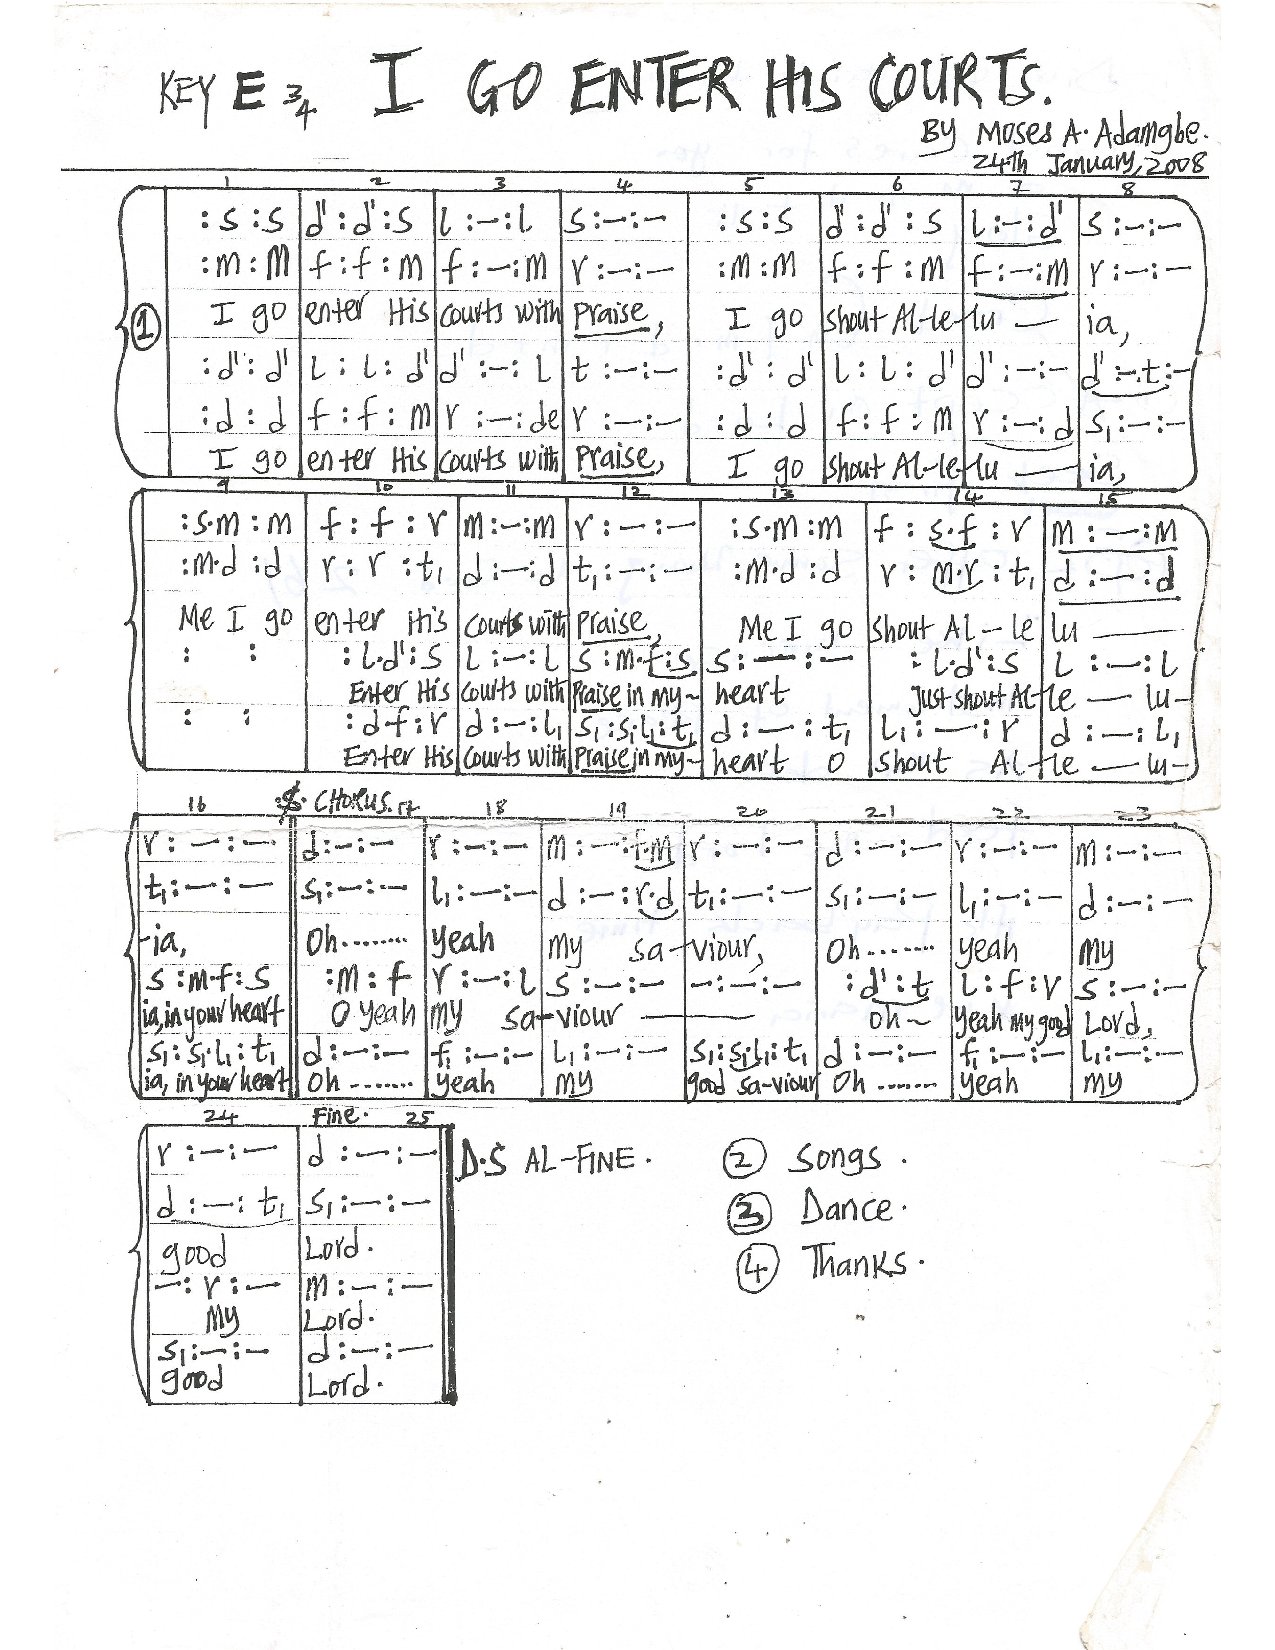 KEY E 3/4 I GO ENTER HIS COURTS.
BY Moses A. Adamgbe.
24th January, 2008
1 2 3 4 5 6 7 8
:s :s | d' : d' : s | l :—: l | s :—:— | :s :s | d' : d' : s | l :—: d' | s :—:—
:m : m | f : f : m | f :—: m | r :—:— | :m : m | f : f : m | f :—: m | r :—:—
① I go | enter His | courts with | Praise, | I go | shout Al-le- | lu — | ia,
:d' : d' | l : l : d' | d' :—: l | t :—:— | :d' : d' | l : l : d' | d' :—:— | d' :—.t :—
:d : d | f : f : m | r :—: de | r :—:— | :d : d | f : f : m | r :—: d | s₁ :—:—
I go | enter His | courts with | Praise, | I go | shout Al-le- | lu — | ia,
9 10 11 12 13 14 15
:s.m : m | f : f : r | m :—: m | r :—:— | :s.m : m | f : s.f : r | m :—: m
:m.d : d | r : r : t₁ | d :—: d | t₁ :—:— | :m.d : d | r : m.r : t₁ | d :—: d
Me I go | enter His | courts with | Praise, | Me I go | shout Al – le | lu —
: : | : l.d' : s | l :—: l | s : m.f : s | s :—:— | : l.d' : s | l :—: l
Enter His | courts with | Praise in my ~ | heart | Just shout Al- | le — lu-
: : | : d.f : r | d :—: l₁ | s₁ : s₁.l₁ : t₁ | d :—: t₁ | l₁ :—: r | d :—: l₁
Enter His | courts with | Praise in my ~ | heart O | shout Al- | le — lu-
16 𝄋. CHORUS. 17 18 19 20 21 22 23
r :—:— | d :—:— | r :—:— | m :—: f.m | r :—:— | d :—:— | r :—:— | m :—:—
t₁ :—:— | s₁ :—:— | l₁ :—:— | d :—: r.d | t₁ :—:— | s₁ :—:— | l₁ :—:— | d :—:—
-ia, | Oh........ | yeah | my sa- | viour, | Oh....... | yeah | my
s : m.f : s | : m : f | r :—: l | s :—:— | — :—:— | : d' : t | l : f : r | s :—:—
ia, in your heart | O yeah | my sa- | viour — | oh ~ | yeah my good | Lord,
s₁ : s₁.l₁ : t₁ | d :—:— | f₁ :—:— | l₁ :—:— | s₁ : s₁.l₁ : t₁ | d :—:— | f₁ :—:— | l₁ :—:—
ia, in your heart | Oh ........ | yeah | my | good sa-viour | Oh ....... | yeah | my
24 Fine. 25
r :—:— | d :—:— D.S AL-FINE. ② Songs.
d :—: t₁ | s₁ :—:— ③ Dance.
good | Lord. ④ Thanks.
— : r :— | m :—:—
my | Lord.
s₁ :—:— | d :—:—
good | Lord.